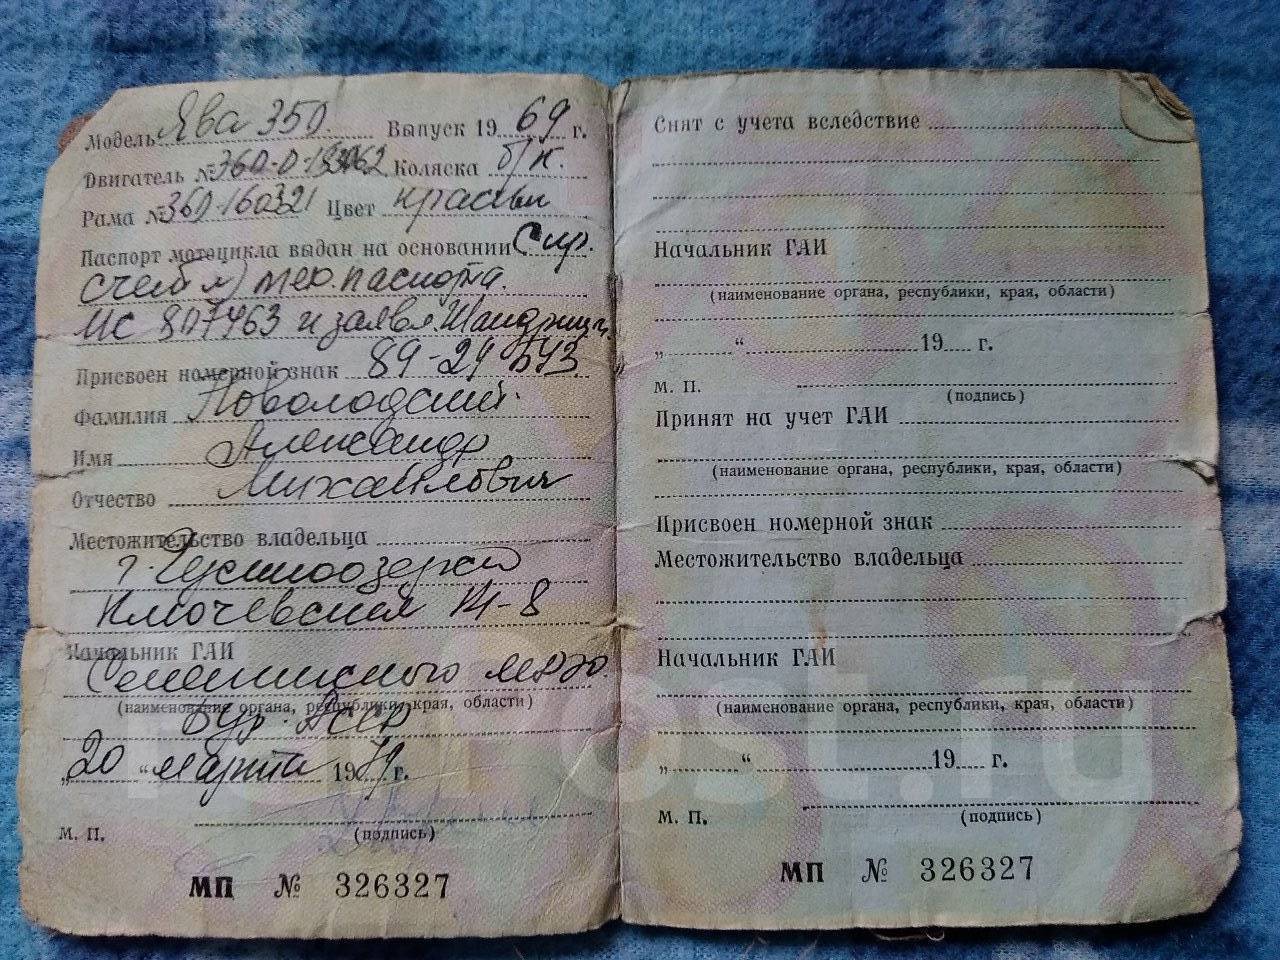 Модель Ява 350. Выпуск 1969 г.
Двигатель № Коляска б/к.
Рама №360-160321 Цвет красный
Паспорт мотоцикла выдан на основании Спр.
счет тех. паспорта.
МС 807463 и заявл.
Присвоен номерной знак 89-29 БУЗ
Фамилия Новолодский.
Имя Александр
Отчество Михайлович
Местожительство владельца
г. Гусиноозерск
Ключевская 14-8
Начальник ГАИ
Селенгинского
(наименование органа, республики, края, области)
Бур. АССР
„20“ марта 1979 г.
М. П.
(подпись)
МП № 326327
Снят с учета вследствие
Начальник ГАИ
(наименование органа, республики, края, области)
„ “ 19 г.
М. П.
(подпись)
Принят на учет ГАИ
(наименование органа, республики, края, области)
Присвоен номерной знак
Местожительство владельца
Начальник ГАИ
(наименование органа, республики, края, области)
„ “ 19 г.
М. П.
(подпись)
МП № 326327